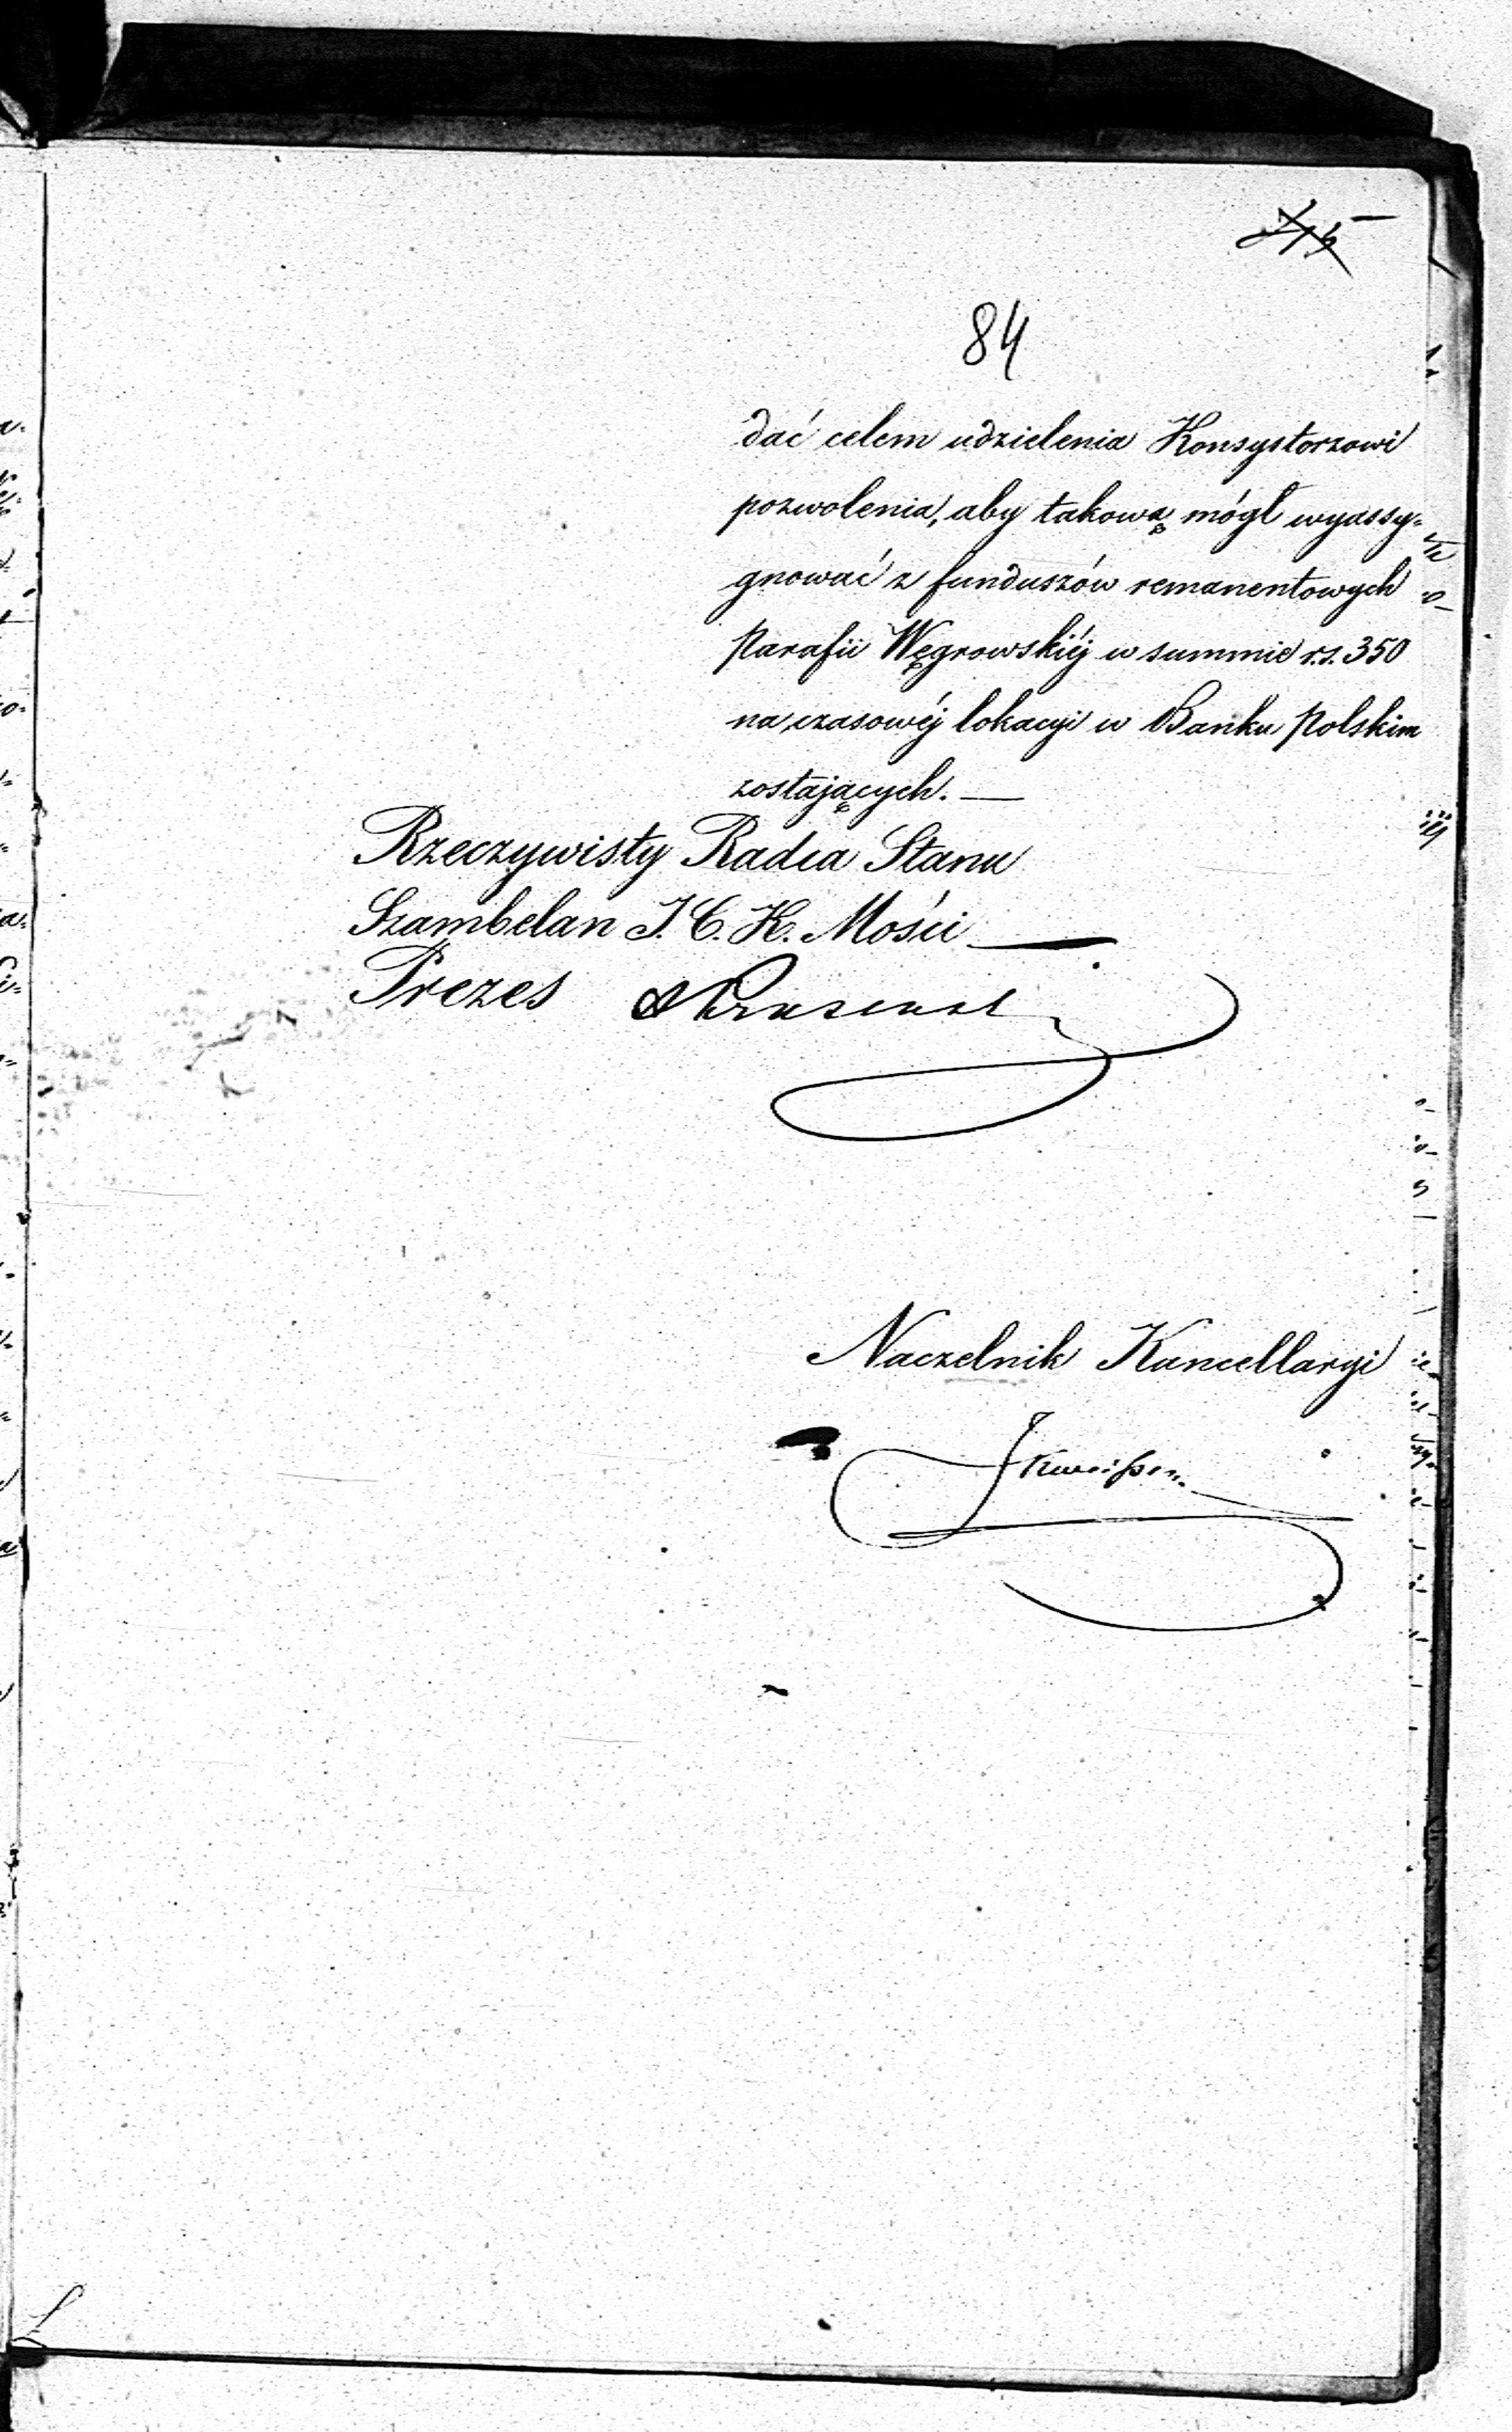 84
dać celem udzielenia Konsystorzowi
pozwolenia, aby takową mógł wyassy=
gnować z funduszów remanentowych
Parafii Węgrowskiéj w summie r.s. 350
na czasowéj lokacyi w Banku Polskim
zostających. —
Rzeczywisty Radca Stanu
Szambelan J. C. K. Mości
Prezes
Naczelnik Kancellaryi